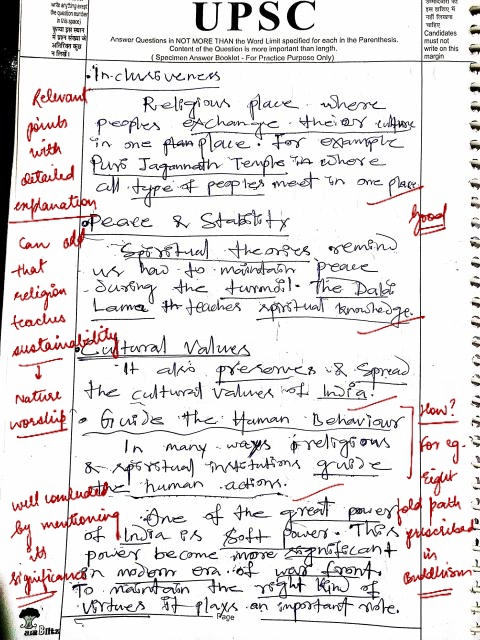 write anything except
the question number
in this space)
कृपया इस स्थान
में प्रश्न संख्या के
अतिरिक्त कुछ
न लिखें।
UPSC
Answer Questions in NOT MORE THAN the Word Limit specified for each in the Parenthesis.
Content of the Question is more important than length.
( Specimen Answer Booklet - For Practice Purpose Only)
इस हाशिए में
नहीं लिखना
चाहिए
Candidates
must not
write on this
margin
• Inclusiveness
Religious place where
peoples exchange their culture
in one place. For example
Puri Jagannath Temple is where
all type of peoples meet in one place
Relevant
points
with
detailed
explanation
• Peace & Stability
Good
Spiritual theories remind
us how to maintain peace
during the turmoil. The Dalai
Lama teaches spiritual knowledge.
Can add
that
religion
teaches
sustainability
↓
Nature
worship
• Cultural Values
It also preserves & spread
the cultural values of India.
• Guide the Human Behaviour
In many ways religious
& spiritual institutions guide
the human actions.
How?
For eg.
Eight
fold path
prescribed
in
Buddhism
One of the great power
of India is soft power. This
power become more significant
in modern era of war front.
To maintain the right kind of
virtues it plays an important role.
well concluded
by mentioning
its
significance
Page